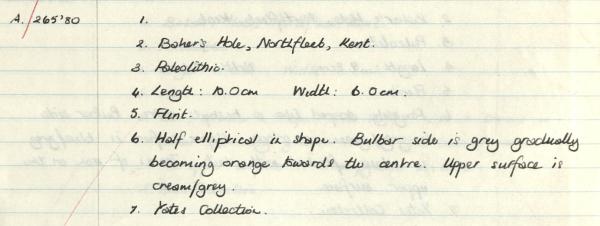 A. 265'80 1.
2. Baker's Hole, Northfleet, Kent.
3. Paleolithic.
4. Length: 10.0cm Width: 6.0cm.
5. Flint.
6. Half elliptical in shape. Bulbar side is grey gradually
becoming orange towards the centre. Upper surface is
cream/grey.
7. Yates Collection.